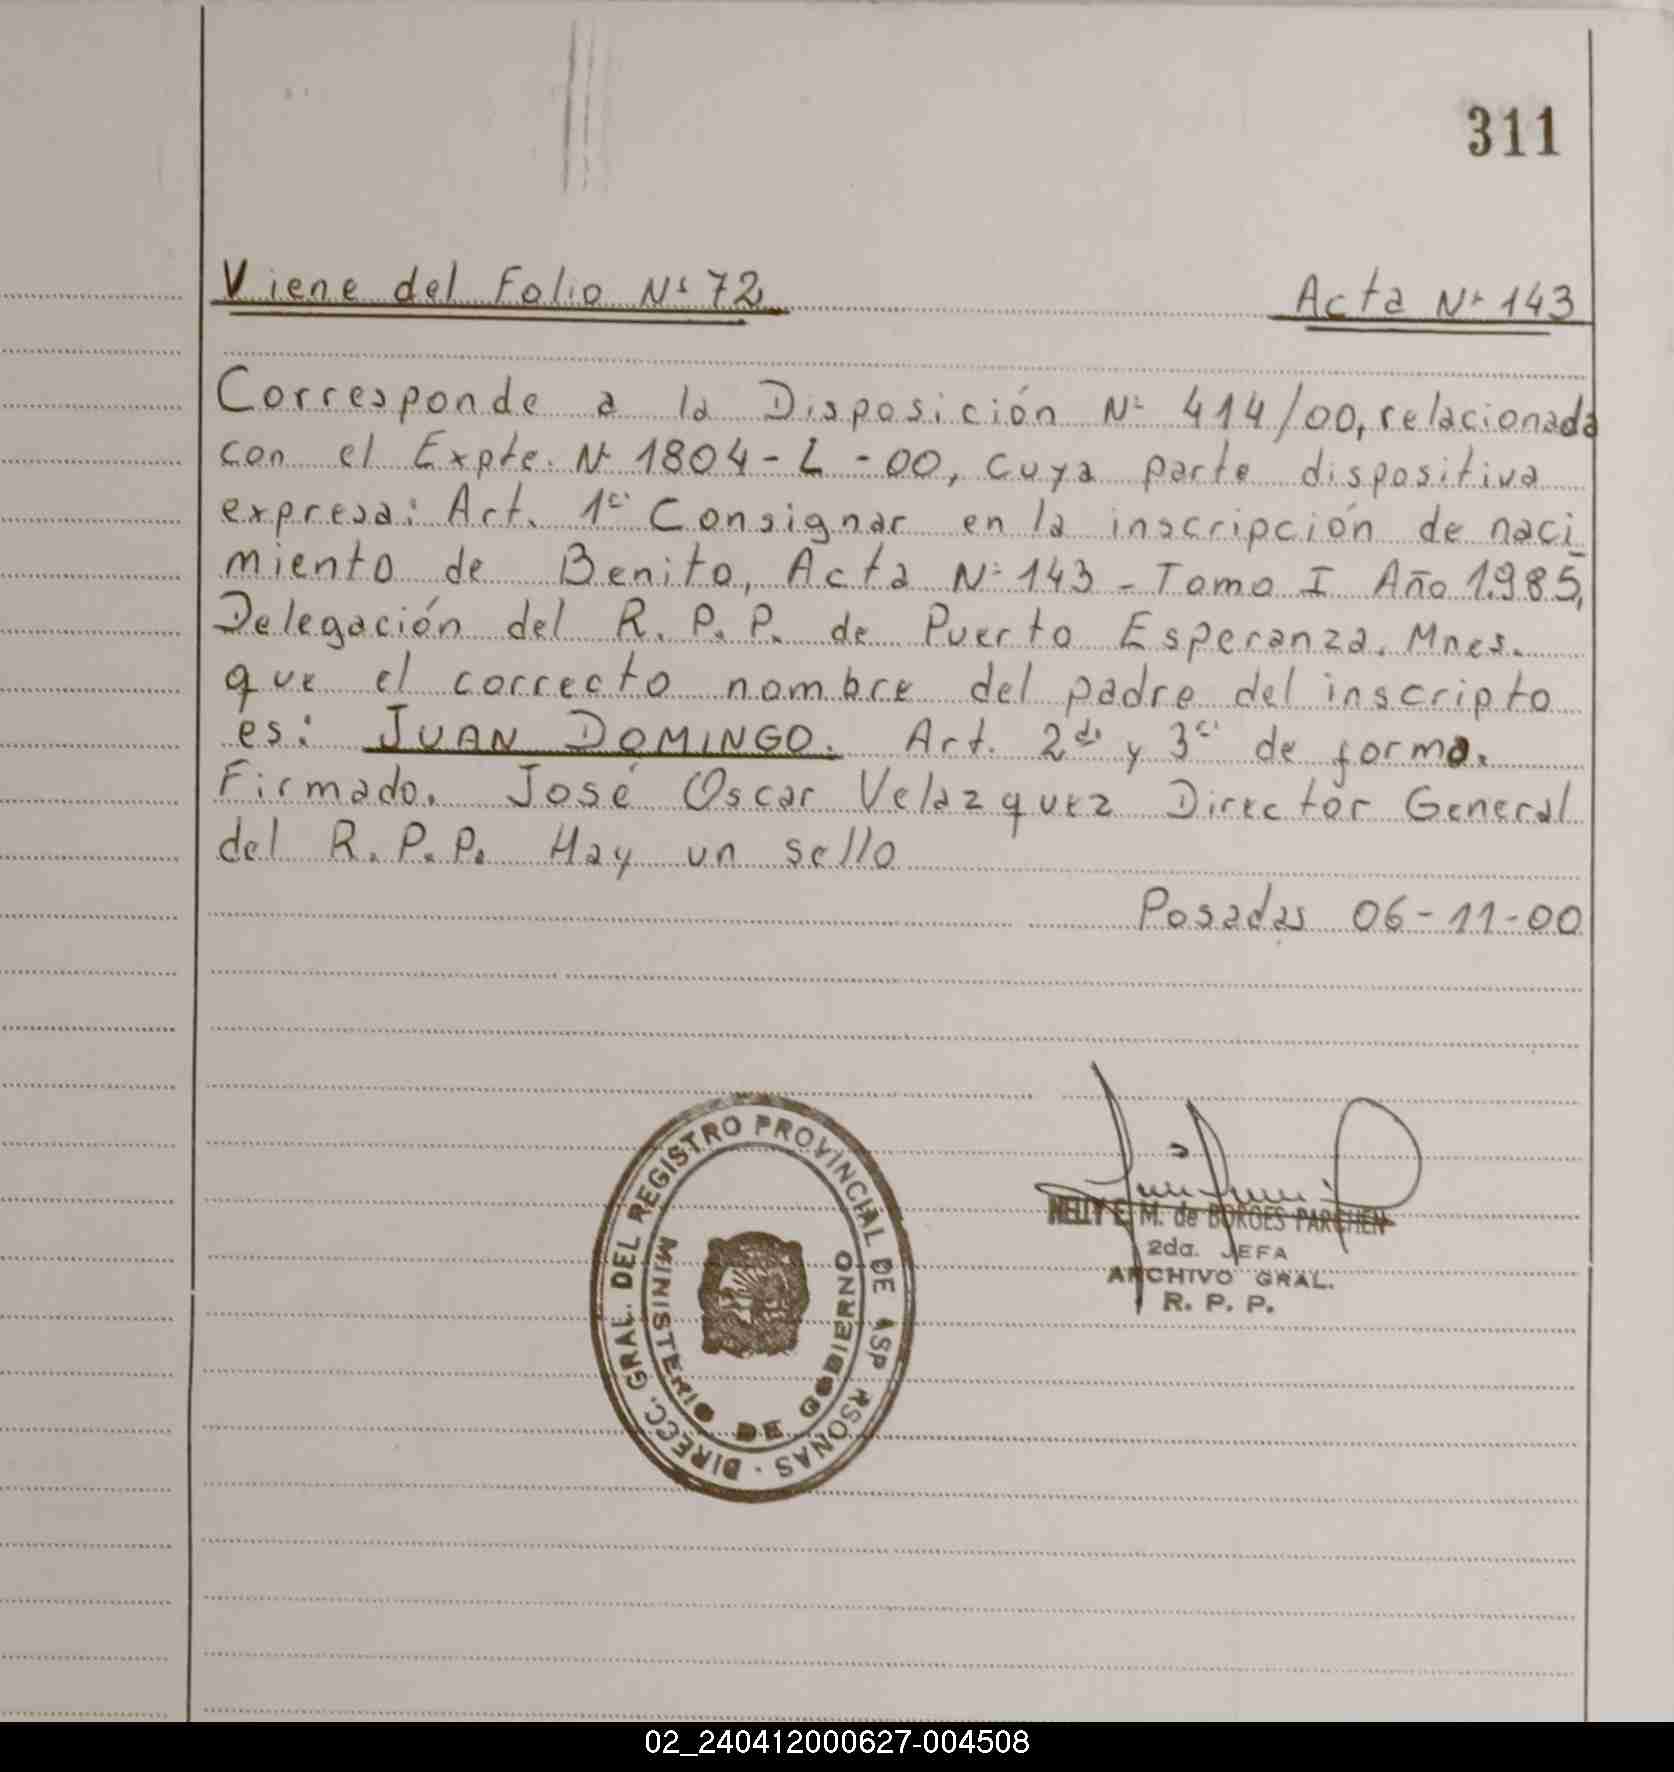 311
Viene del Folio Nº 72
Acta Nº 143
Corresponde a la Disposición Nº 414/00, relacionada
con el Expte. Nº 1804-L-00, cuya parte dispositiva
expresa: Art. 1º Consignar en la inscripción de naci
miento de Benito, Acta Nº 143 - Tomo I Año 1.985,
Delegación del R. P. P. de Puerto Esperanza. Mnes.
que el correcto nombre del padre del inscripto
es: JUAN DOMINGO. Art. 2do y 3º de forma.
Firmado. José Oscar Velazquez Director General
del R. P. P. Hay un sello
Posadas 06-11-00
DIRECC. GRAL. DEL REGISTRO PROVINCIAL DE ASP RSONAS
MINISTERIO DE GOBIERNO
NELLY E. M. de BORGES PARCHEN
2da. JEFA
ARCHIVO GRAL.
R. P. P.
02_240412000627-004508